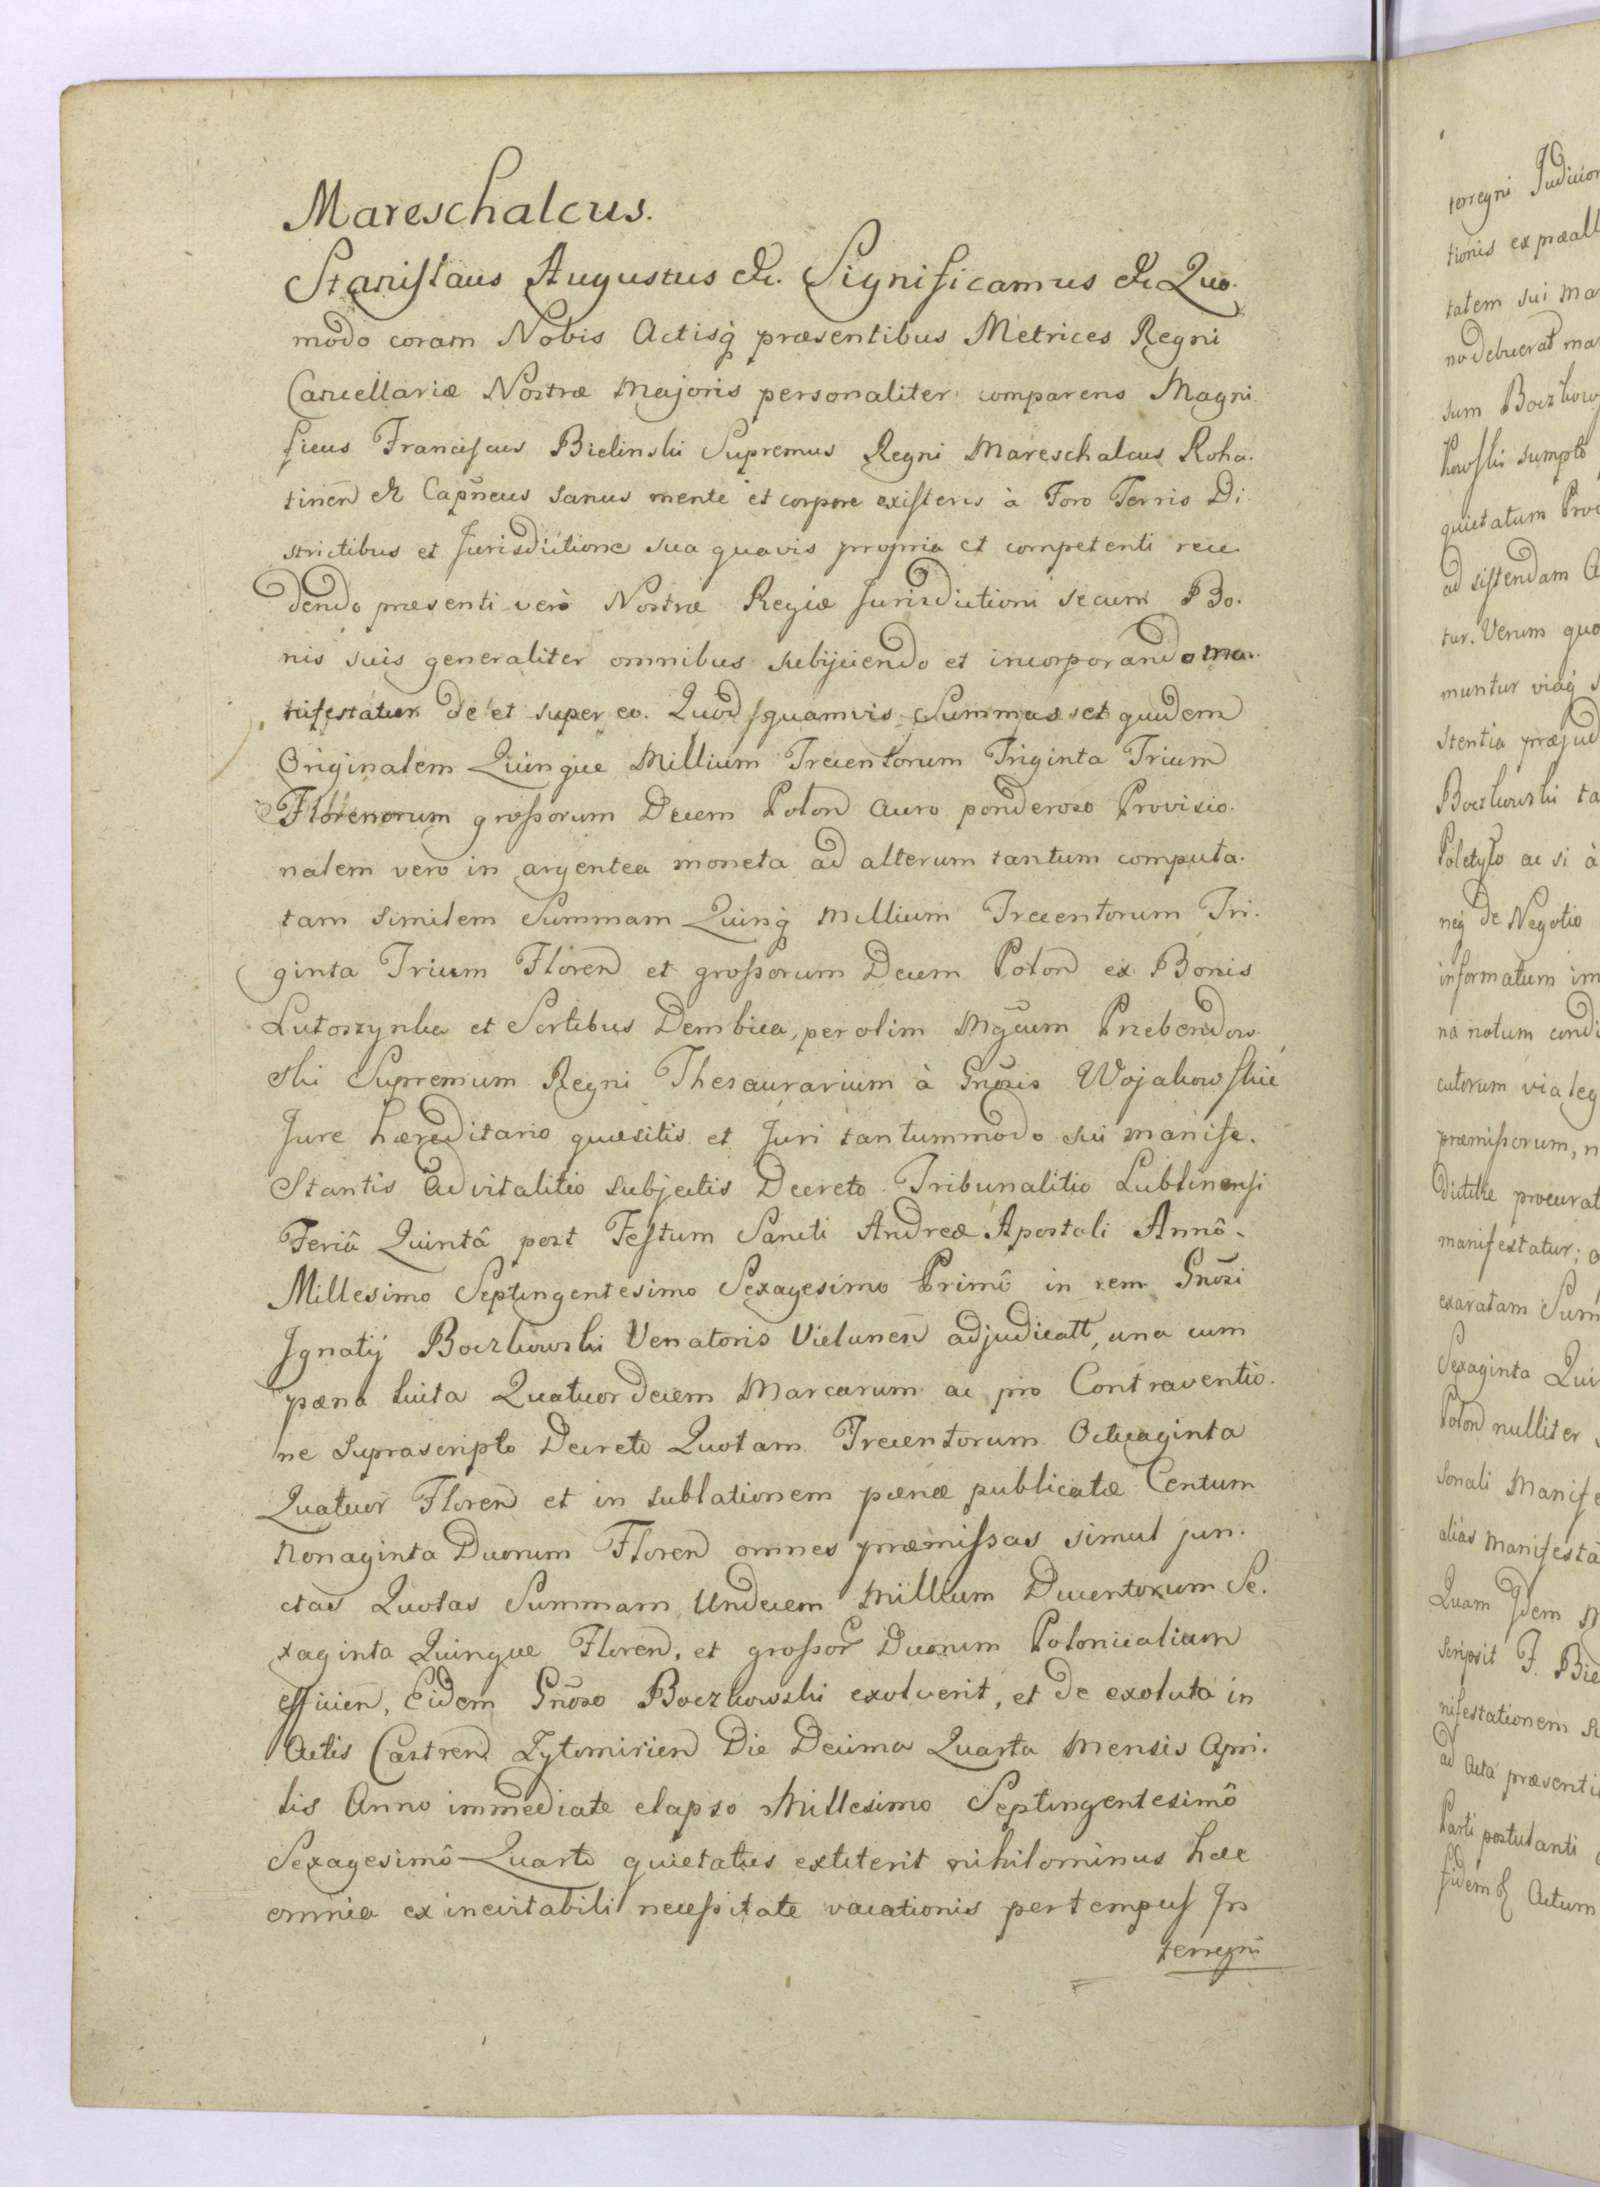 Mareschalcus.
Stanislaus Augustus &c. Significamus &c Quo-
modo coram Nobis Actisq́ præsentibus Metrices Regni
Cancellariæ Nostræ Majoris personaliter comparens Magni
ficus Franciscus Bielinski Supremus Regni Mareschalcus Roha-
tinen̄ &c Capn̄eus sanus mente et corpore existens à Foro Terris Di-
strictibus et Jurisdictione sua quavis propria et competenti rece-
dendo præsenti verò Nostræ Regiæ Jurisdictioni secum Bo-
nis suis generaliter omnibus subijciendo et incorporando ma-
nifestatur de et super eo. Quod quamvis Summas et quidem
Originalem Quinque Millium Trecentorum Triginta Trium
Florenorum grossorum Decem Polon̄ auro ponderoso Provisio-
nalem vero in argentea moneta ad alterum tantum computa-
tam similem Summam Quinq́ Millium Trecentorum Tri-
ginta Trium Floren̄ et grossorum Decem Polon̄ ex Bonis
Lutoszynka et Sortibus Dembica, per olim Mgc̄um Przebendow-
ski Supremum Regni Thesaurarium à Gn̄osis Wojakowskie
Jure hæreditario quæsitis et Juri tantummodo sui manife-
stantis advitalitio subjectis Decreto Tribunalitio Lublinensi
Feriâ Quintâ post Festum Sancti Andreæ Apostoli Annô
Millesimo Septingentesimo Sexagesimo Primô in rem Gn̄osi
Ignatij Boczkowski Venatoris Vielunen̄ adjudicatt, una cum
pæna luita Quatuordecim Marcarum ac pro Contraventio-
ne suprascripto Decreto Quotam Trecentorum Octuaginta
Quatuor Floren̄ et in sublationem pænæ publicatæ Centum
Nonaginta Duorum Floren̄ omnes præmissas simul jun-
ctas Quotas Summam Undecem Millium Ducentorum Se-
xaginta Quinque Floren̄, et grossor̄ Duorum Polonicalium
efficien̄, Eidem Gn̄oso Boczkowski exolverit, et de exoluta in
Actis Castren̄ Zytomirien̄ Die Decima Quarta Mensis Apri-
lis Anno immediate elapso Millesimo Septingentesimô
Sexagesimô Quarto quietatus extiterit nihilominus hæc
omnia ex inevitabili necessitate vacationis per tempus In
terregni
terregni
tionis ex præall
tatem sui
no debuerat
sum
sumpto
quietatum
ad sistendam
tur. Verum
muntur viaq́
stentia
Boczkowski
Poletyło ac si à
neq́ de Negotio
informatum
na notum
cutorum via leg
præmissorum,
procurat
manifestatur;
exaratam
Sexaginta
Polon̄ nulliter
sonali
alias
Quam Idem
scripsit F.
nifestationem
ad Acta
Parti postulanti
fidem & Actum